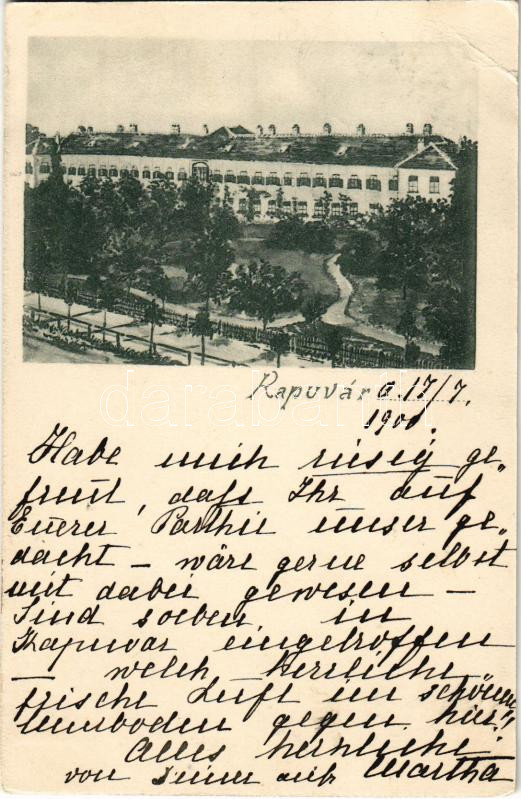 Kapuvár d. 17/7.
1900.
Habe mich riesig ge„
freut, daſs Ihr auf
Euerer Parthie unser ge„
dacht – wäre gerne selbst
mit dabei gewesen –
Sind soeben in
Kapuvar eingetroffen
– welch herrliche,
frische Luft im
gegen hier!
Alles herzliche
von Deiner
Martha
darabanth.com